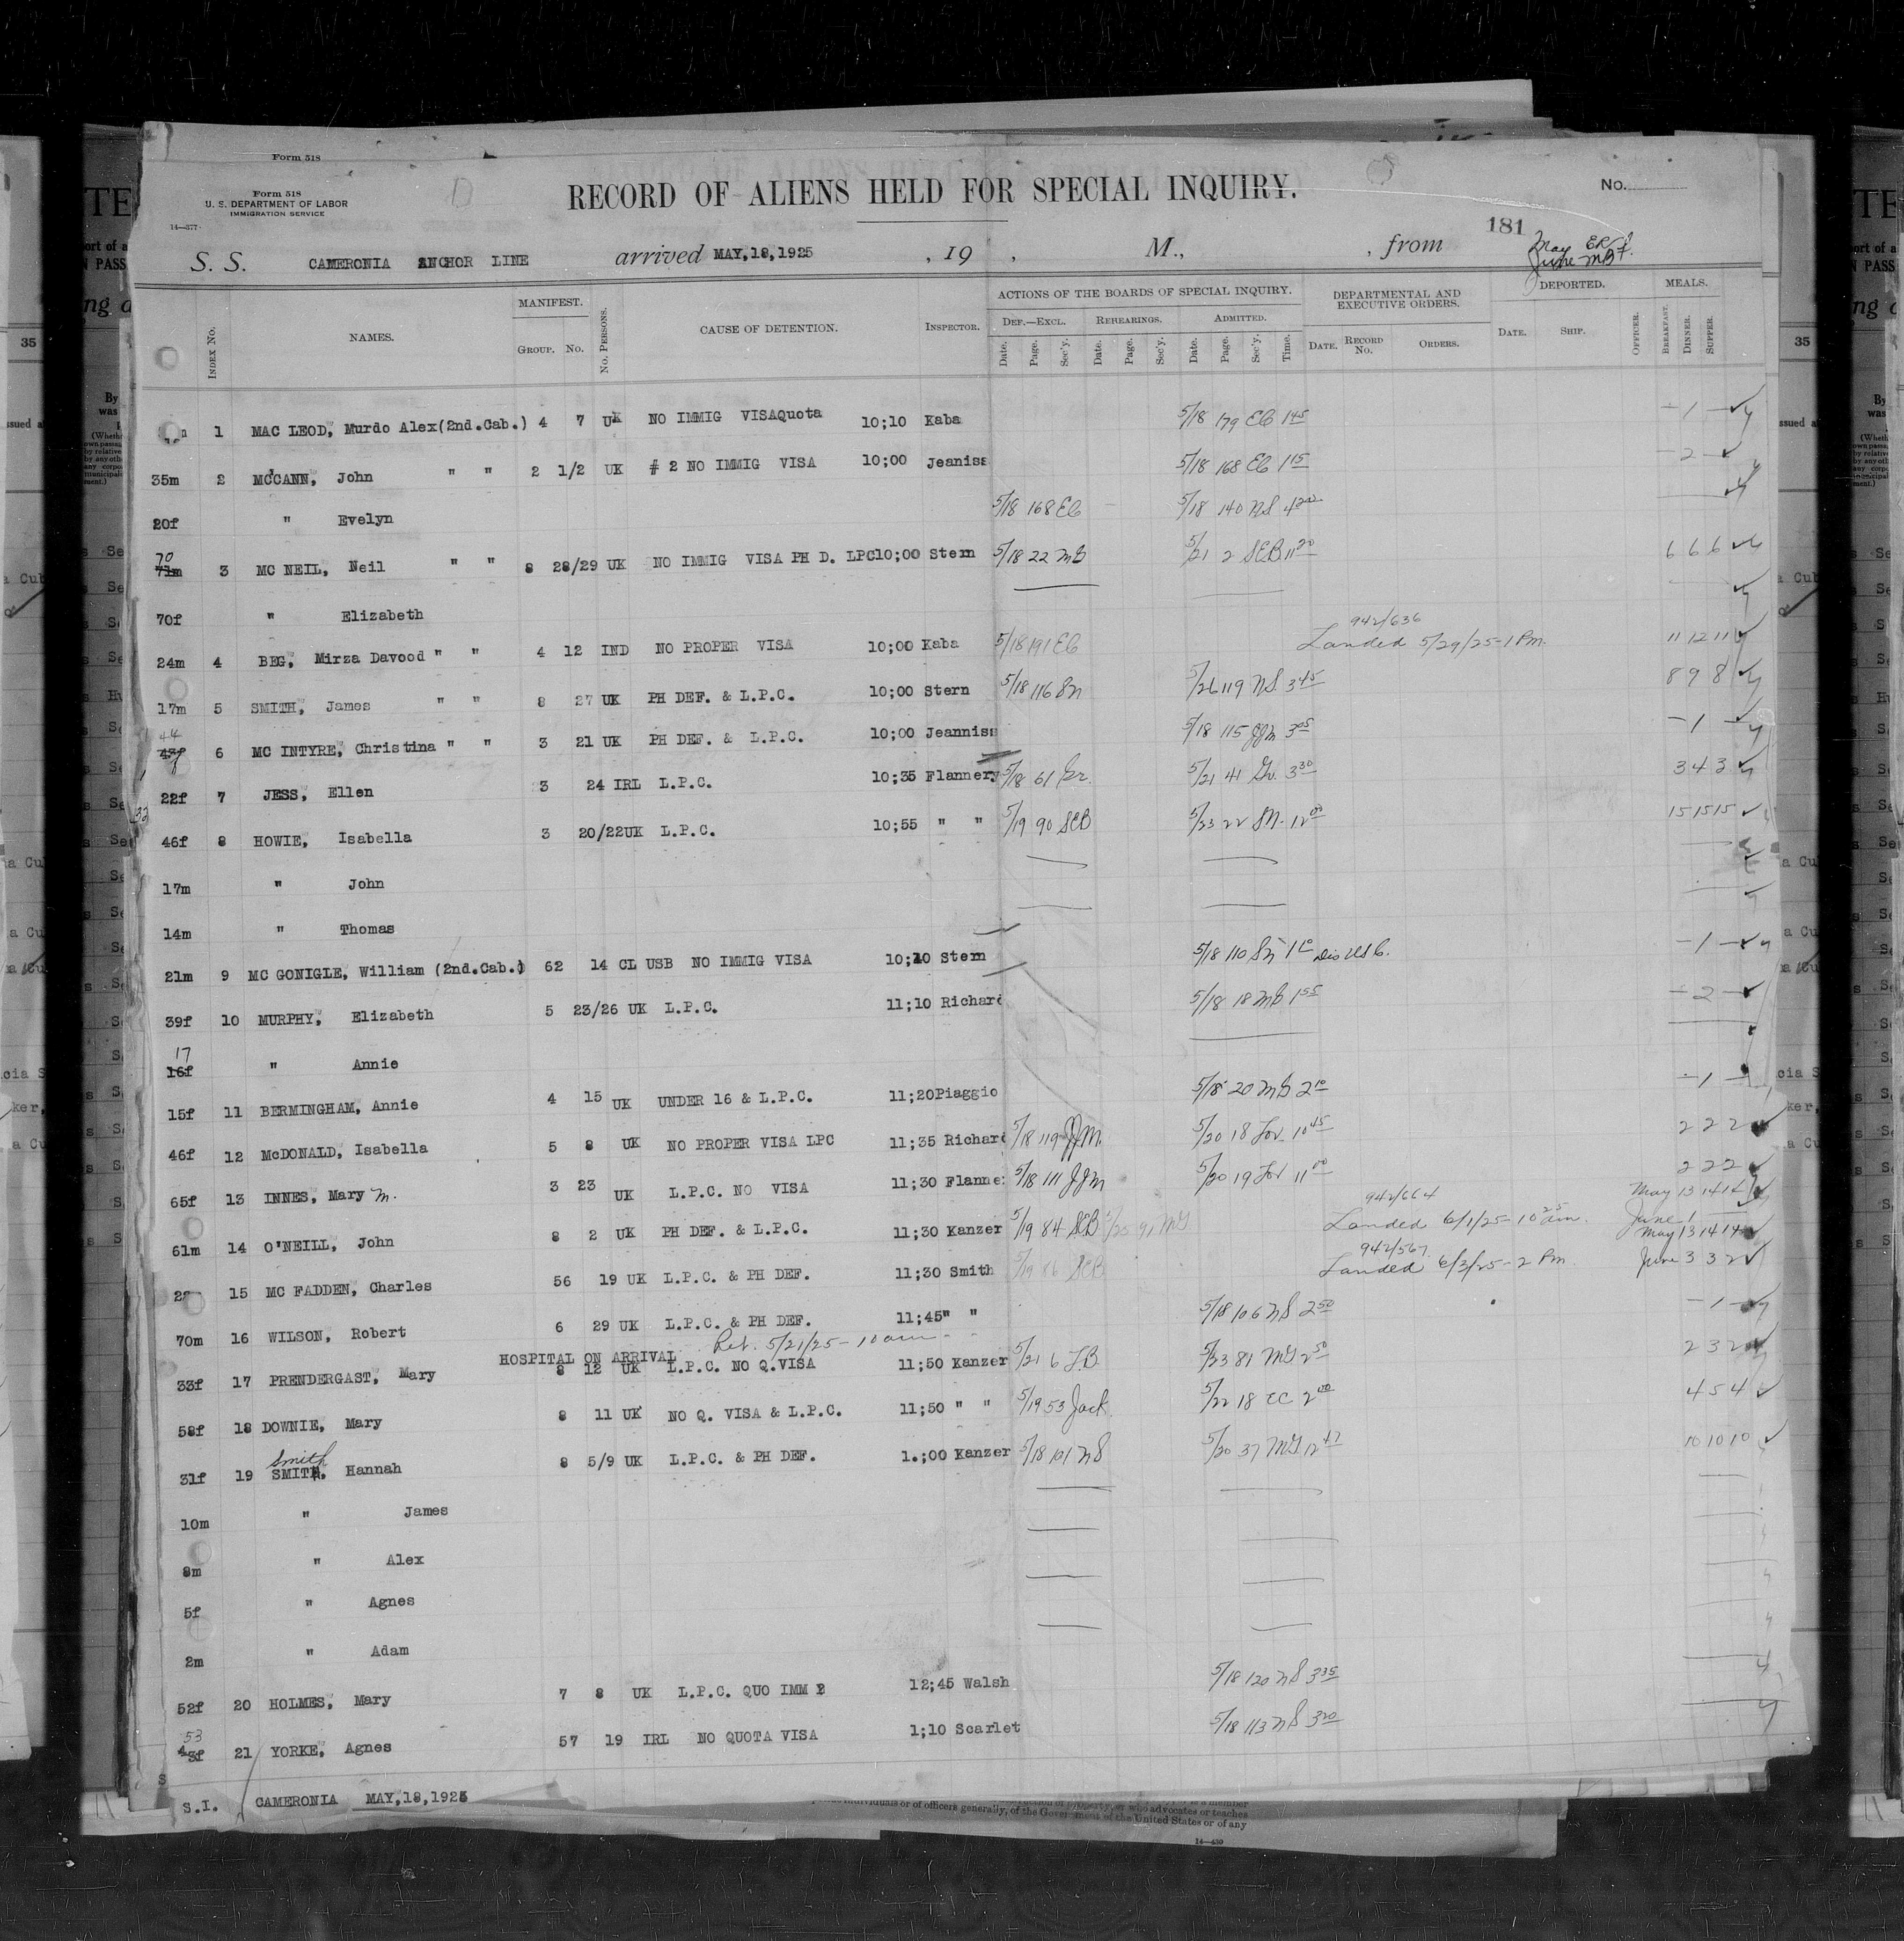 Form 518
Form 518
U. S. DEPARTMENT OF LABOR
IMMIGRATION SERVICE
14—377
RECORD OF ALIENS HELD FOR SPECIAL INQUIRY.
No.
181
S. S. CAMERONIA ANCHOR LINE arrived MAY,18,1925 , 19 , M., , from
May
June
INDEX No. NAMES. MANIFEST. GROUP. No. No. PERSONS. CAUSE OF DETENTION. INSPECTOR. ACTIONS OF THE BOARDS OF SPECIAL INQUIRY. DEF.—EXCL. Date. Page. Sec'y. REHEARINGS. Date. Page. Sec'y. ADMITTED. Date. Page. Sec'y. Time. DEPARTMENTAL AND EXECUTIVE ORDERS. DATE. RECORD No. ORDERS. DEPORTED. DATE. SHIP. OFFICER. MEALS. BREAKFAST. DINNER. SUPPER.
1 MAC LEOD, Murdo Alex(2nd.Cab.) 4 7 UK NO IMMIG VISAQuota 10;10 Kaba 5/18 179 EC 1 45 – 1 –
35m 2 MC'CANN, John " " 2 1/2 UK # 2 NO IMMIG VISA 10;00 Jeaniss 5/18 168 EC 1 15 – 2 –
20f " Evelyn 5/18 168 EC 5/18 140 NS 4 20
70 71m 3 MC NEIL, Neil " " 8 28/29 UK NO IMMIG VISA PH D. LPC10;00 Stern 5/18 22 MB 5/21 2 SEB 11 20 6 6 6
70f " Elizabeth
24m 4 BEG, Mirza Davood " " 4 12 IND NO PROPER VISA 10;00 Kaba 5/18 191 EC 942/636 Landed 5/29/25-1 Pm. 11 12 11
17m 5 SMITH, James " " 8 27 UK PH DEF. & L.P.C. 10;00 Stern 5/18 116 SN 5/26 119 NS 3 45 8 9 8
44 43f 6 MC INTYRE, Christina " " 3 21 UK PH DEF. & L.P.C. 10;00 Jeanniss 5/18 115 JJM 3 05 – 1 –
22f 7 JESS, Ellen 3 24 IRL L.P.C. 10;35 Flannery 5/18 61 Gr. 5/21 41 Gr. 3 30 3 4 3
46f 8 HOWIE, Isabella 3 20/22UK L.P.C. 10;55 " " 5/19 90 SEB 5/23 22 SN 12 00 15 15 15
17m " John
14m " Thomas
21m 9 MC GONIGLE, William (2nd.Cab.) 62 14 CL USB NO IMMIG VISA 10;10 Stern 5/18 110 SN 1 10 Dis US C. – 1 –
39f 10 MURPHY, Elizabeth 5 23/26 UK L.P.C. 11;10 Richard 5/18 18 MB 1 55 – 2 –
17 16f " Annie
15f 11 BERMINGHAM, Annie 4 15 UK UNDER 16 & L.P.C. 11;20Piaggio 5/18 20 MB 2 10 – 1 –
46f 12 McDONALD, Isabella 5 8 UK NO PROPER VISA LPC 11;35 Richard 5/18 119 JJM. 5/20 18 10 45 2 2 2
65f 13 INNES, Mary M. 3 23 UK L.P.C. NO VISA 11;30 Flanne 5/18 111 JJM 5/20 19 11 00 2 2 2
61m 14 O'NEILL, John 8 2 UK PH DEF. & L.P.C. 11;30 Kanzer 5/19 84 SEB 5/25 91 MG 942/664 Landed 6/1/25-10 25 am. May 13 14 14 June 1
15 MC FADDEN, Charles 56 19 UK L.P.C. & PH DEF. 11;30 Smith 5/19 86 SEB 942/567 Landed 6/3/25-2 Pm May 13 14 14 June 3 3 2
70m 16 WILSON, Robert 6 29 UK L.P.C. & PH DEF. 11;45" " 5/18 106 NS 2 50 – 1 –
Ret. 5/21/25-10 am
HOSPITAL ON ARRIVAL
33f 17 PRENDERGAST, Mary 8 12 UK L.P.C. NO Q.VISA 11;50 Kanzer 5/21 6 5/23 81 MG 2 50 2 3 2
58f 18 DOWNIE, Mary 8 11 UK NO Q. VISA & L.P.C. 11;50 " " 5/19 53 Jack 5/22 18 EC 2 00 4 5 4
Smith
31f 19 SMITH, Hannah 8 5/9 UK L.P.C. & PH DEF. 1.;00 Kanzer 5/18 101 NS 5/20 37 MG 12 47 10 10 10
10m " James
8m " Alex
5f " Agnes
2m " Adam
52f 20 HOLMES, Mary 7 8 UK L.P.C. QUO IMM 12;45 Walsh 5/18 120 NS 3 35
53 43f 21 YORKE, Agnes 57 19 IRL NO QUOTA VISA 1;10 Scarlet 5/18 113 NS 3 20
S.I. CAMERONIA MAY,18,1925
individuals or of officers generally, of the Government of the United States or of any
14—430